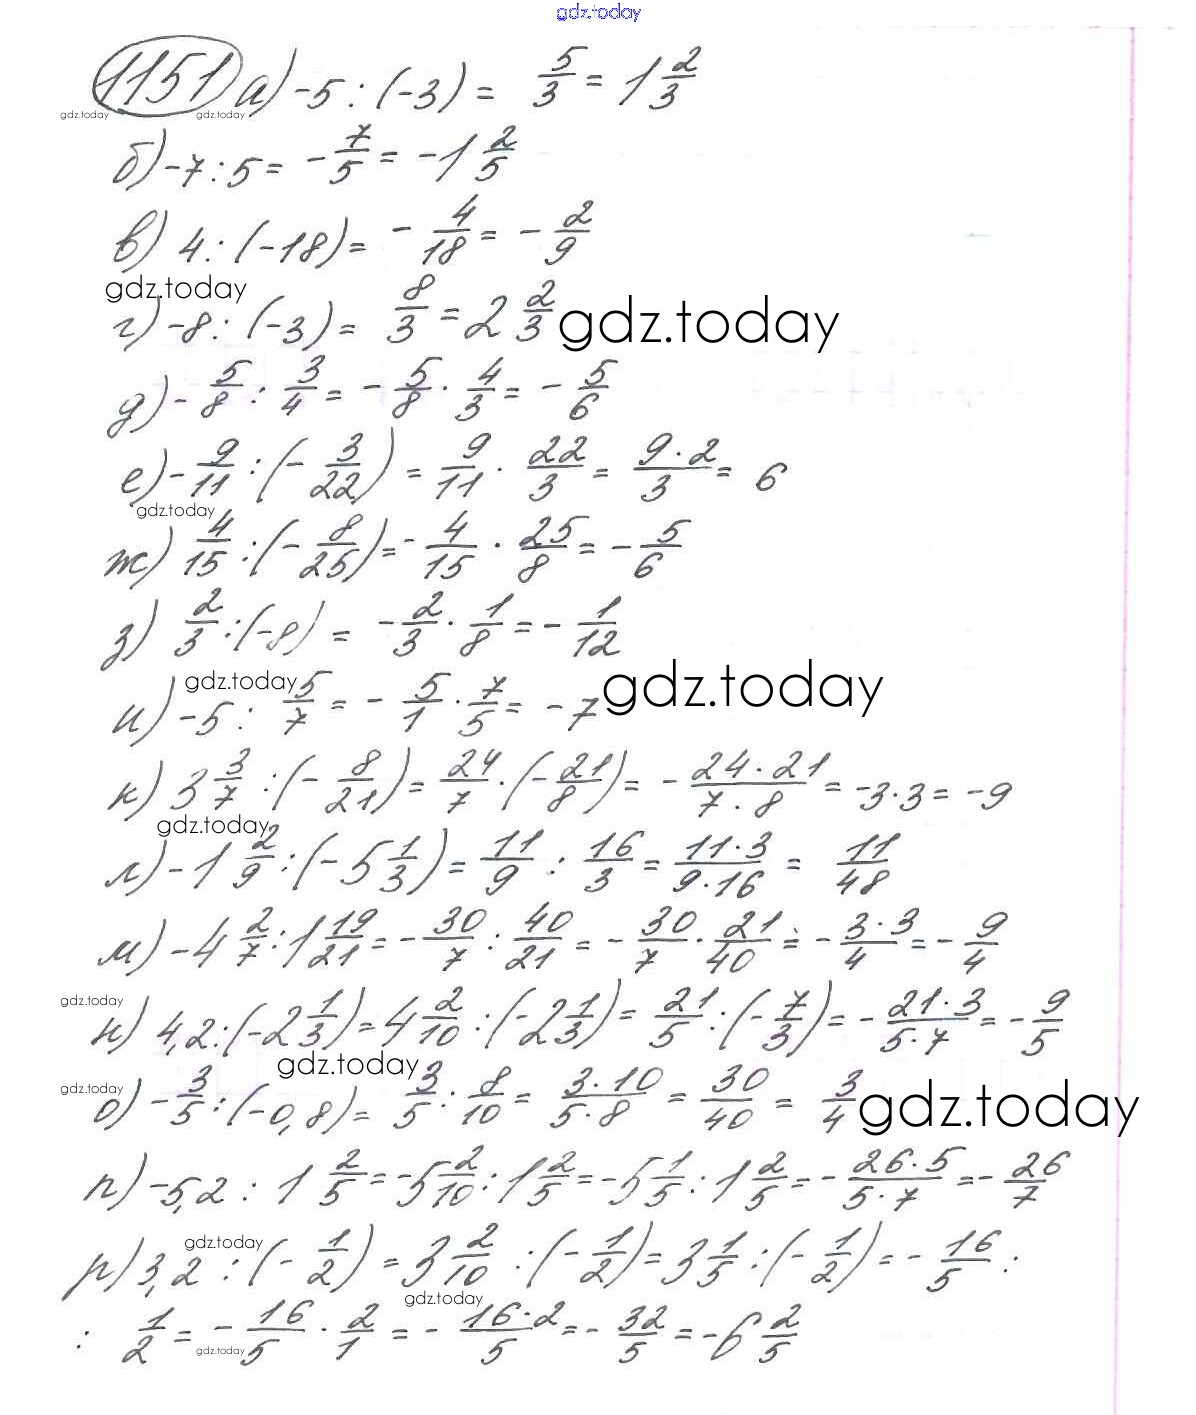 gdz.today
1151 а) -5 : (-3) = 5/3 = 1 2/3
gdz.today gdz.today
б) -7 : 5 = - 7/5 = -1 2/5
в) 4 : (-18) = - 4/18 = - 2/9
gdz.today
г) -8 : (-3) = 8/3 = 2 2/3 gdz.today
д) - 5/8 : 3/4 = - 5/8 · 4/3 = - 5/6
е) - 9/11 : (- 3/22) = 9/11 · 22/3 = 9·2/3 = 6
gdz.today
ж) 4/15 : (- 8/25) = - 4/15 · 25/8 = - 5/6
з) 2/3 : (-8) = - 2/3 · 1/8 = - 1/12
gdz.today gdz.today
и) -5 : 5/7 = - 5/1 · 7/5 = -7
к) 3 3/7 : (- 8/21) = 24/7 · (- 21/8) = - 24·21/7·8 = -3·3 = -9
gdz.today
л) -1 2/9 : (-5 1/3) = 11/9 : 16/3 = 11·3/9·16 = 11/48
м) -4 2/7 : 1 19/21 = - 30/7 : 40/21 = - 30/7 · 21/40 = - 3·3/4 = - 9/4
gdz.today
н) 4,2 : (-2 1/3) = 4 2/10 : (-2 1/3) = 21/5 : (- 7/3) = - 21·3/5·7 = - 9/5
gdz.today
gdz.today
о) - 3/5 : (-0,8) = 3/5 : 8/10 = 3·10/5·8 = 30/40 = 3/4 gdz.today
п) -5,2 : 1 2/5 = -5 2/10 : 1 2/5 = -5 1/5 : 1 2/5 = - 26·5/5·7 = - 26/7
gdz.today
р) 3,2 : (- 1/2) = 3 2/10 : (- 1/2) = 3 1/5 : (- 1/2) = - 16/5 :
gdz.today
: 1/2 = - 16/5 · 2/1 = - 16·2/5 = - 32/5 = -6 2/5
gdz.today